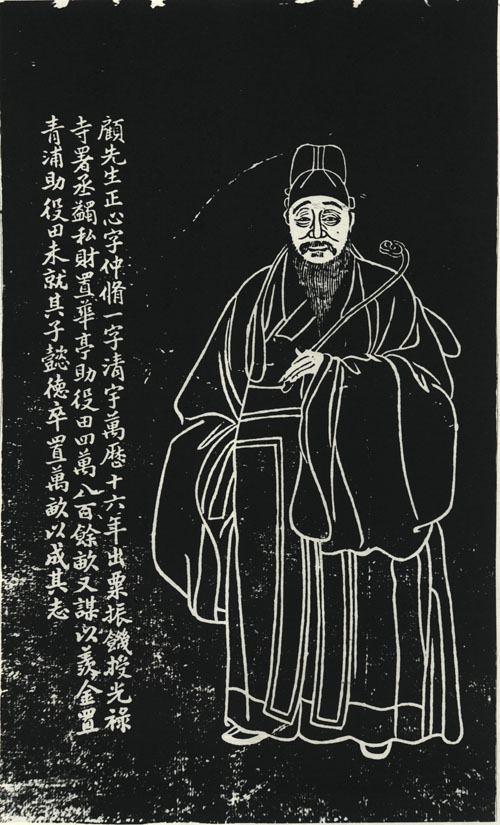 顧先生正心字仲脩一字清宇萬歷十六年出粟振饑授光祿
寺署丞蠲私財置華亭助役田四萬八百餘畝又謀以羨金置
青浦助役田未就其子懿德卒置萬畝以成其志